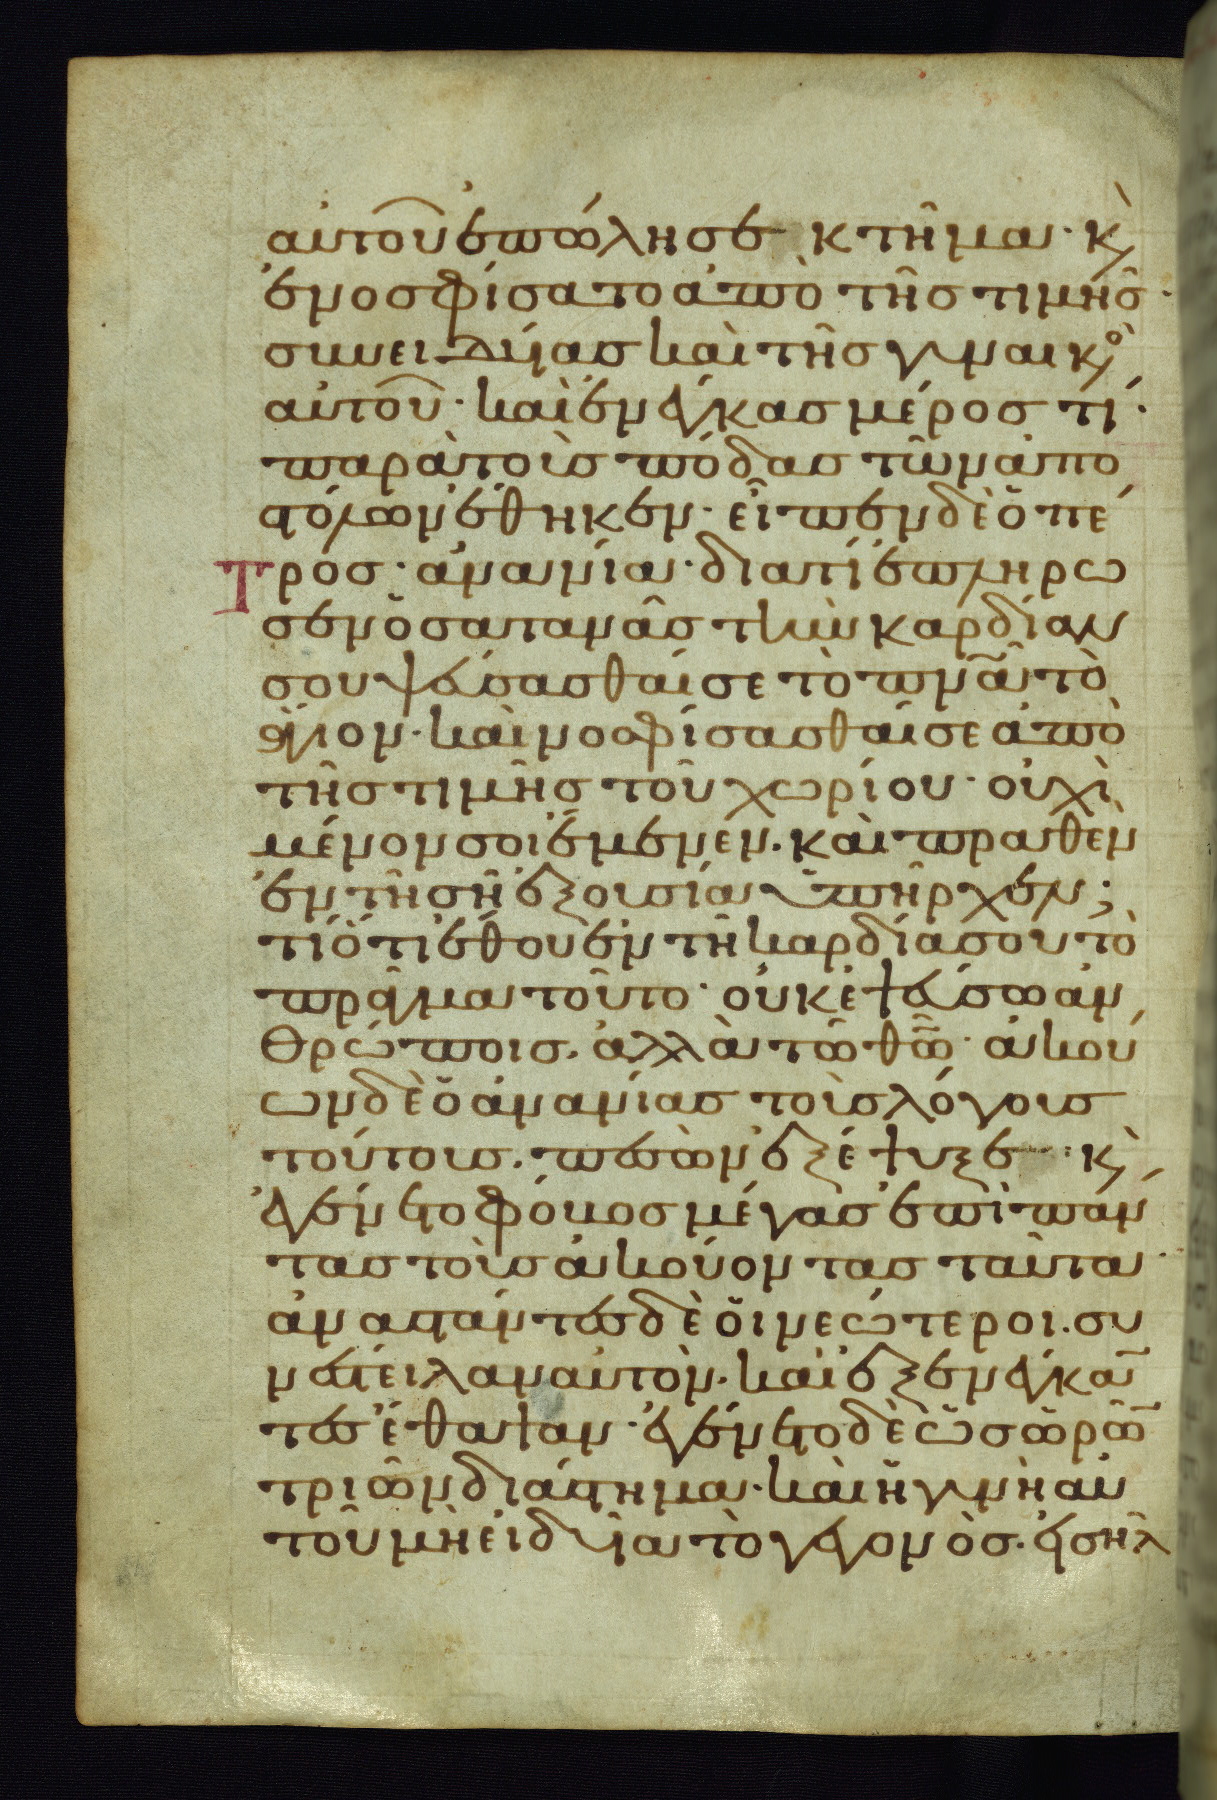 αὐτοῦ ἐπώλησε κτῆμα· κ(αὶ)
ἐνοσφίσατο ἀπὸ τῆς τιμῆς·
συνειδυίας καὶ τῆς γυναικὸ
αὐτοῦ· καὶ ἐνέγκας μέρος τί·
παρὰ τοὺς πόδας τῶν ἀπο
στόλων ἔθηκεν· εἶπεν δὲ ὁ πέ
τρος· ἀνανία· διατί ἐπλήρω
σεν ὁ σατανᾶς τὴν καρδίαν
σου ψεύσασθαί σε τὸ πνᾶ τὸ
ἅγιον· καὶ νοσφίσασθαί σε ἀπὸ
τῆς τιμῆς τοῦ χωρίου· οὐχὶ
μένον σοι ἔμενεν· καὶ πραθὲν
ἐν τῇ σῇ ἐξουσία ὑπῆρχεν;
τί ὅτι ἔθου ἐν τῇ καρδία σου τὸ
πρᾶγμα τοῦτο· οὐκ ἐψεύσω ἀν
θρώποις· ἀλλὰ τῶ θῶ· ἀκού
ων δὲ ὁ ἀνανίας τοὺς λόγους
τούτους· πεσὼν ἐξέψυξε· κ(αὶ)
ἐγένετο φόβος μέγας ἐπὶ πάν
τας τοὺς ἀκούοντας ταῦτα·
ἀναστάντες δὲ οἱ νεώτεροι· συ
νέστειλαν αὐτὸν· καὶ ἐξενέγκαν
τες ἔθαψαν· ἐγένετο δὲ ὡς ὡρῶν
τριῶν διάστημα· καὶ ἡ γυνὴ αὐ
τοῦ μὴ εἰδυῖα τὸ γεγονὸς· εἰσῆλ